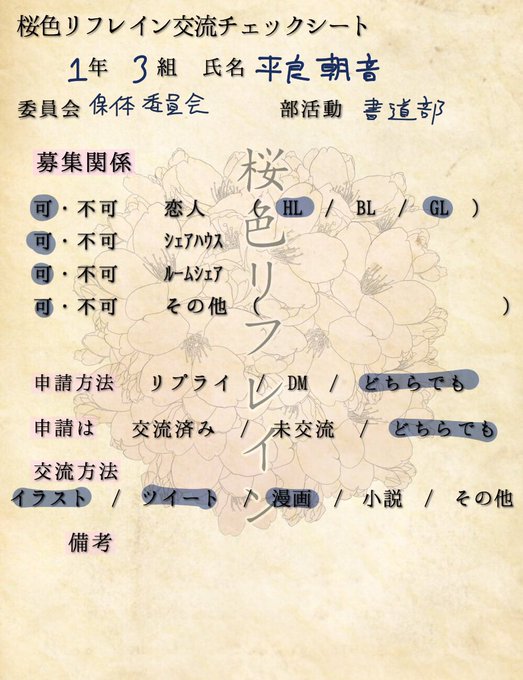 桜色リフレイン交流チェックシート
1年 3組 氏名 平良朝音
委員会 保体委員会 部活動 書道部
桜色リフレイン
募集関係
可・不可 恋人 ( HL / BL / GL )
可・不可 ｼｪｱﾊｳｽ
可・不可 ﾙｰﾑｼｪｱ
可・不可 その他 ( )
申請方法 リプライ / DM / どちらでも
申請は 交流済み / 未交流 / どちらでも
交流方法
イラスト / ツイート / 漫画 / 小説 / その他
備考